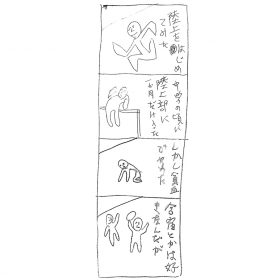 陸上をはじめ
てめた
中学の頃に
陸上部に
一ヶ月だけ入った
しかし貧血
でやめた
合宿とかは好
きなんだが